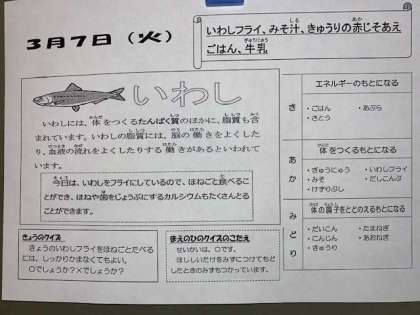 3月7日（火）
いわしフライ、みそ汁、きゅうりの赤じそあえ
ごはん、牛乳
いわし
いわしには、体をつくるたんぱく質のほかに、脂質も含
まれています。いわしの脂質には、脳の働きをよくした
り、血液の流れをよくしたりする働きがあるといわれて
います。
今日は、いわしをフライにしているので、ほねごと食べるこ
とができ、ほねや歯をじょうぶにするカルシウムもたくさんと
ることができます。
きょうのクイズ
きょうのいわしフライをほねごとたべる
には、しっかりかまなくてもよい。
〇でしょうか？×でしょうか？
まえのひのクイズのこたえ
せいかいは、〇です。
ほしいたけをみずにつけてもど
したときのみずもつかっています。
き
エネルギーのもとになる
・ごはん ・あぶら
・さとう
あか
体をつくるもとになる
・ぎゅうにゅう ・いわしフライ
・みそ ・だしこんぶ
・けずりぶし
みどり
体の調子をととのえるもとになる
・だいこん ・たまねぎ
・にんじん ・あおねぎ
・きゅうり